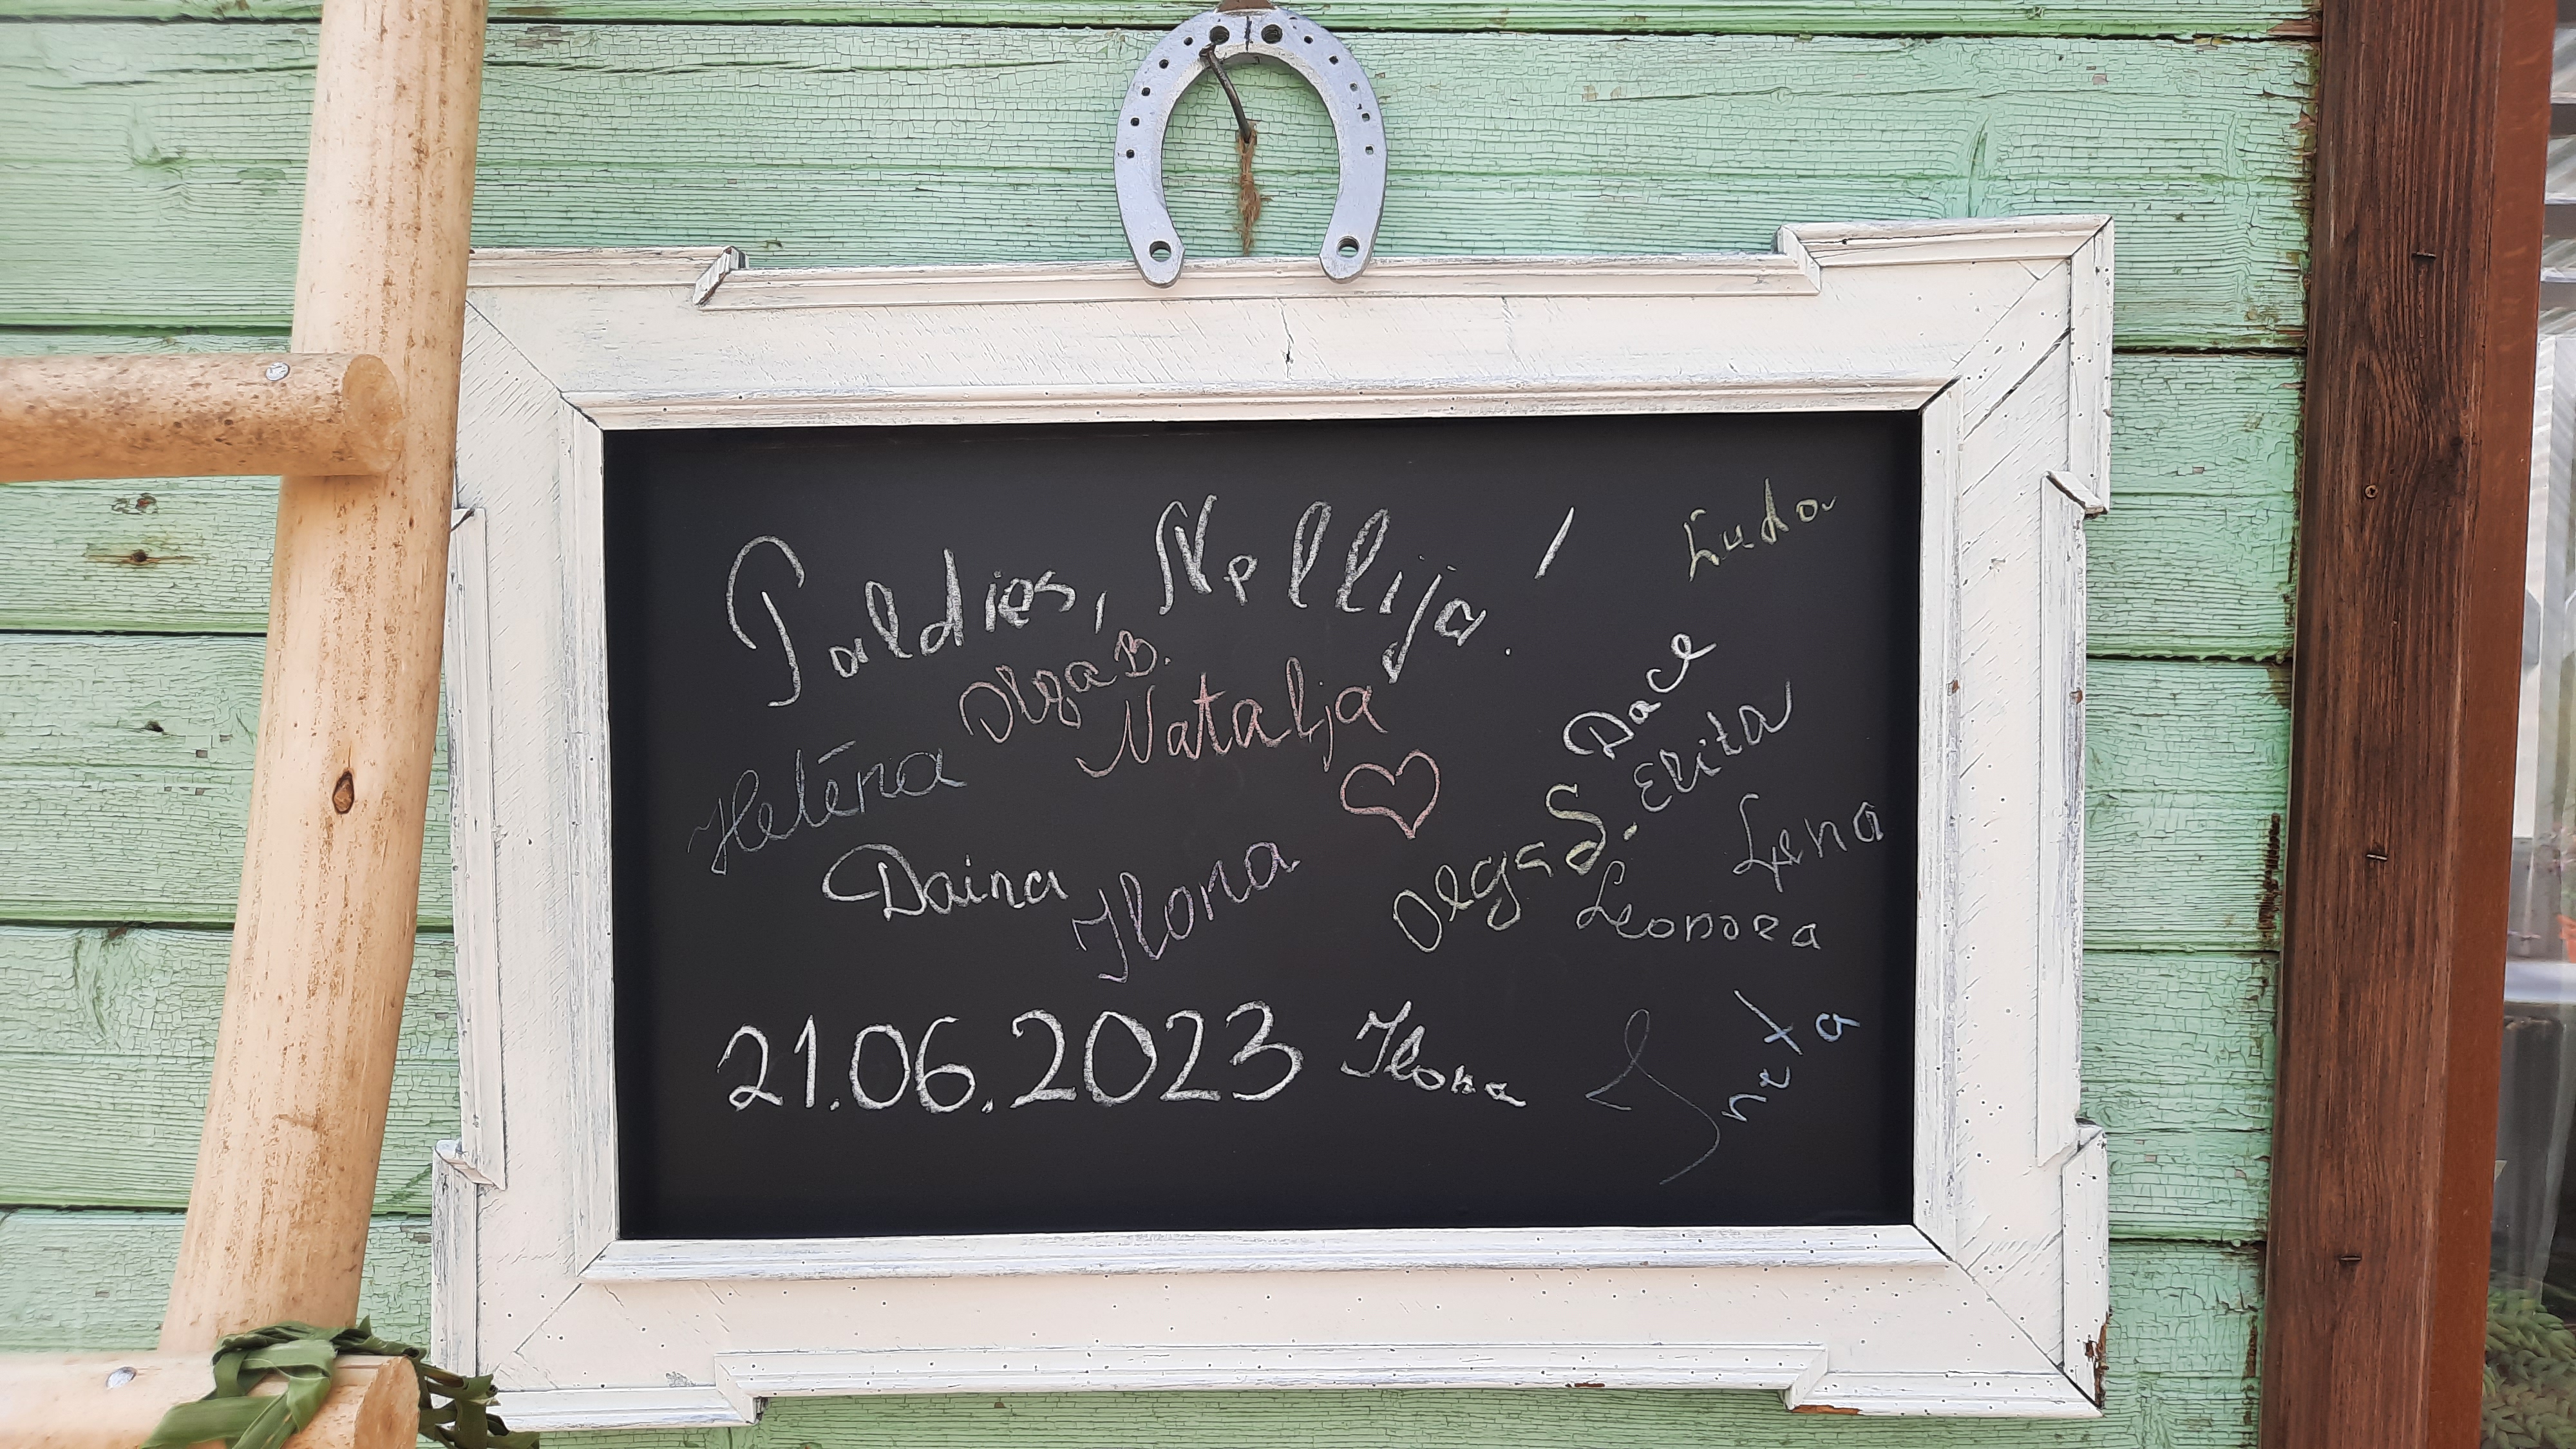 Paldies, Nellija!
Luda
Olga B.
Natalja
Dace
Elita
Helēna
Olga S.
Lena
Daina
Ilona
Leonora
21.06.2023
Ilona
Ineta